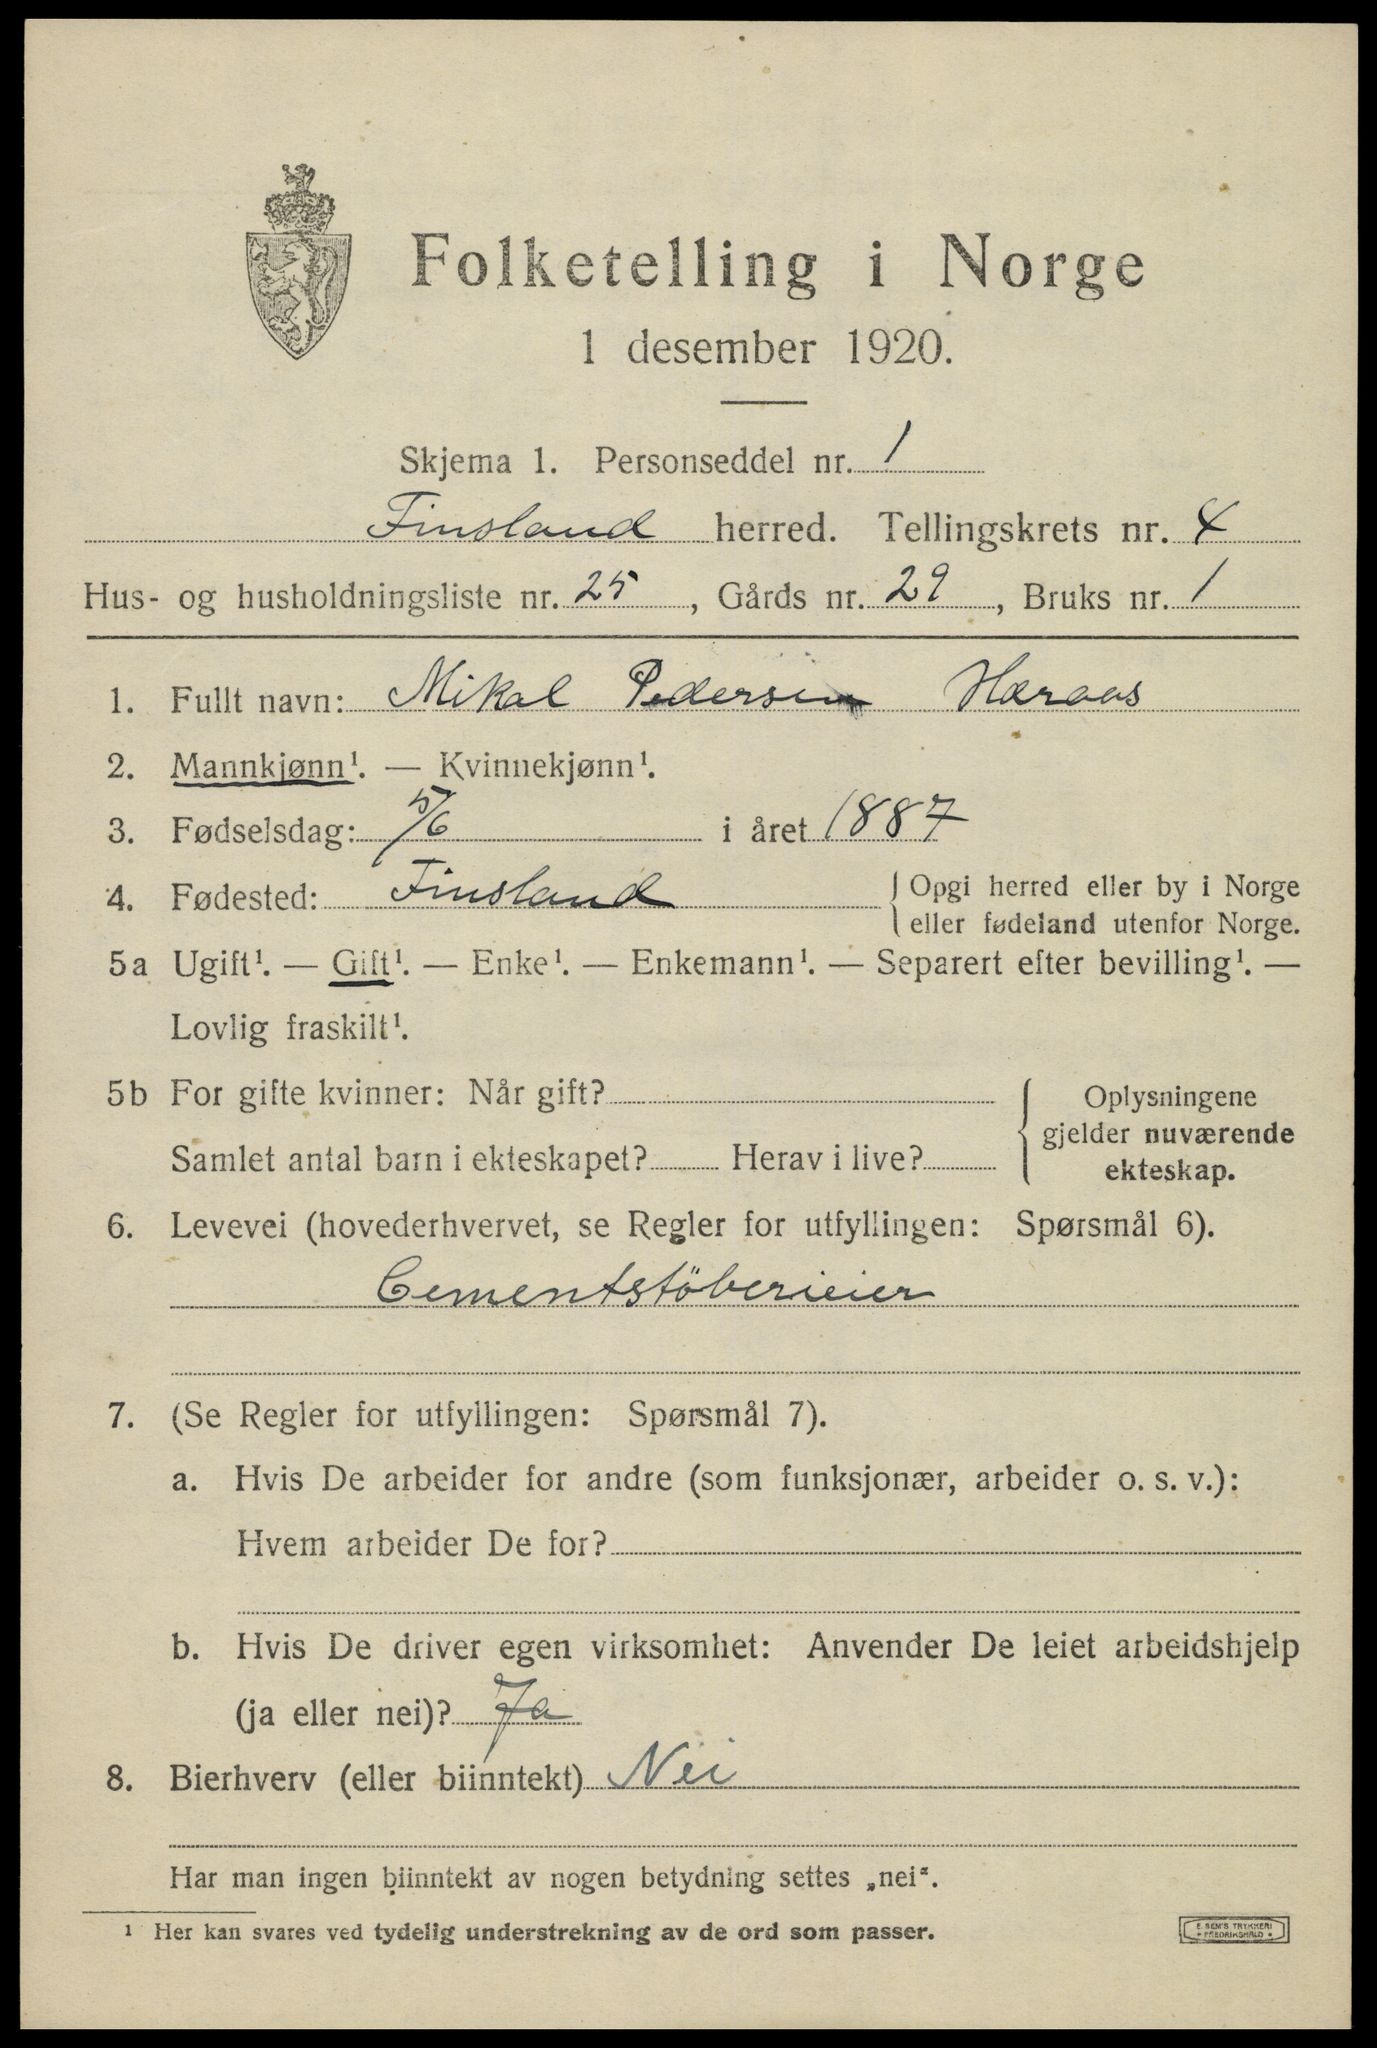 Folketelling i Norge
1 desember 1920.
Skjema 1. Personseddel nr. 1
Finsland herred. Tellingskrets nr. 4
Hus- og husholdningsliste nr. 25, Gårds nr. 29, Bruks nr. 1
1. Fullt navn: Mikal Pedersen Høraas
2. Mannkjønn¹. — Kvinnekjønn¹.
3. Fødselsdag: 5/6 i året 1887
4. Fødested: Finsland { Opgi herred eller by i Norge
eller fødeland utenfor Norge.
5a Ugift¹. — Gift¹. — Enke¹. — Enkemann¹. — Separert efter bevilling¹. —
Lovlig fraskilt¹.
5b For gifte kvinner: Når gift?
Samlet antal barn i ekteskapet? Herav i live?
Oplysningene
gjelder nuværende
ekteskap.
6. Levevei (hovederhvervet, se Regler for utfyllingen: Spørsmål 6).
Cementstöberieier
7. (Se Regler for utfyllingen: Spørsmål 7).
a. Hvis De arbeider for andre (som funksjonær, arbeider o. s. v.):
Hvem arbeider De for?
b. Hvis De driver egen virksomhet: Anvender De leiet arbeidshjelp
(ja eller nei)? Ja
8. Bierhverv (eller biinntekt) Nei
Har man ingen biinntekt av nogen betydning settes „nei“.
¹ Her kan svares ved tydelig understrekning av de ord som passer.
E. SEM'S TRYKKERI
• FREDRIKSHALD •